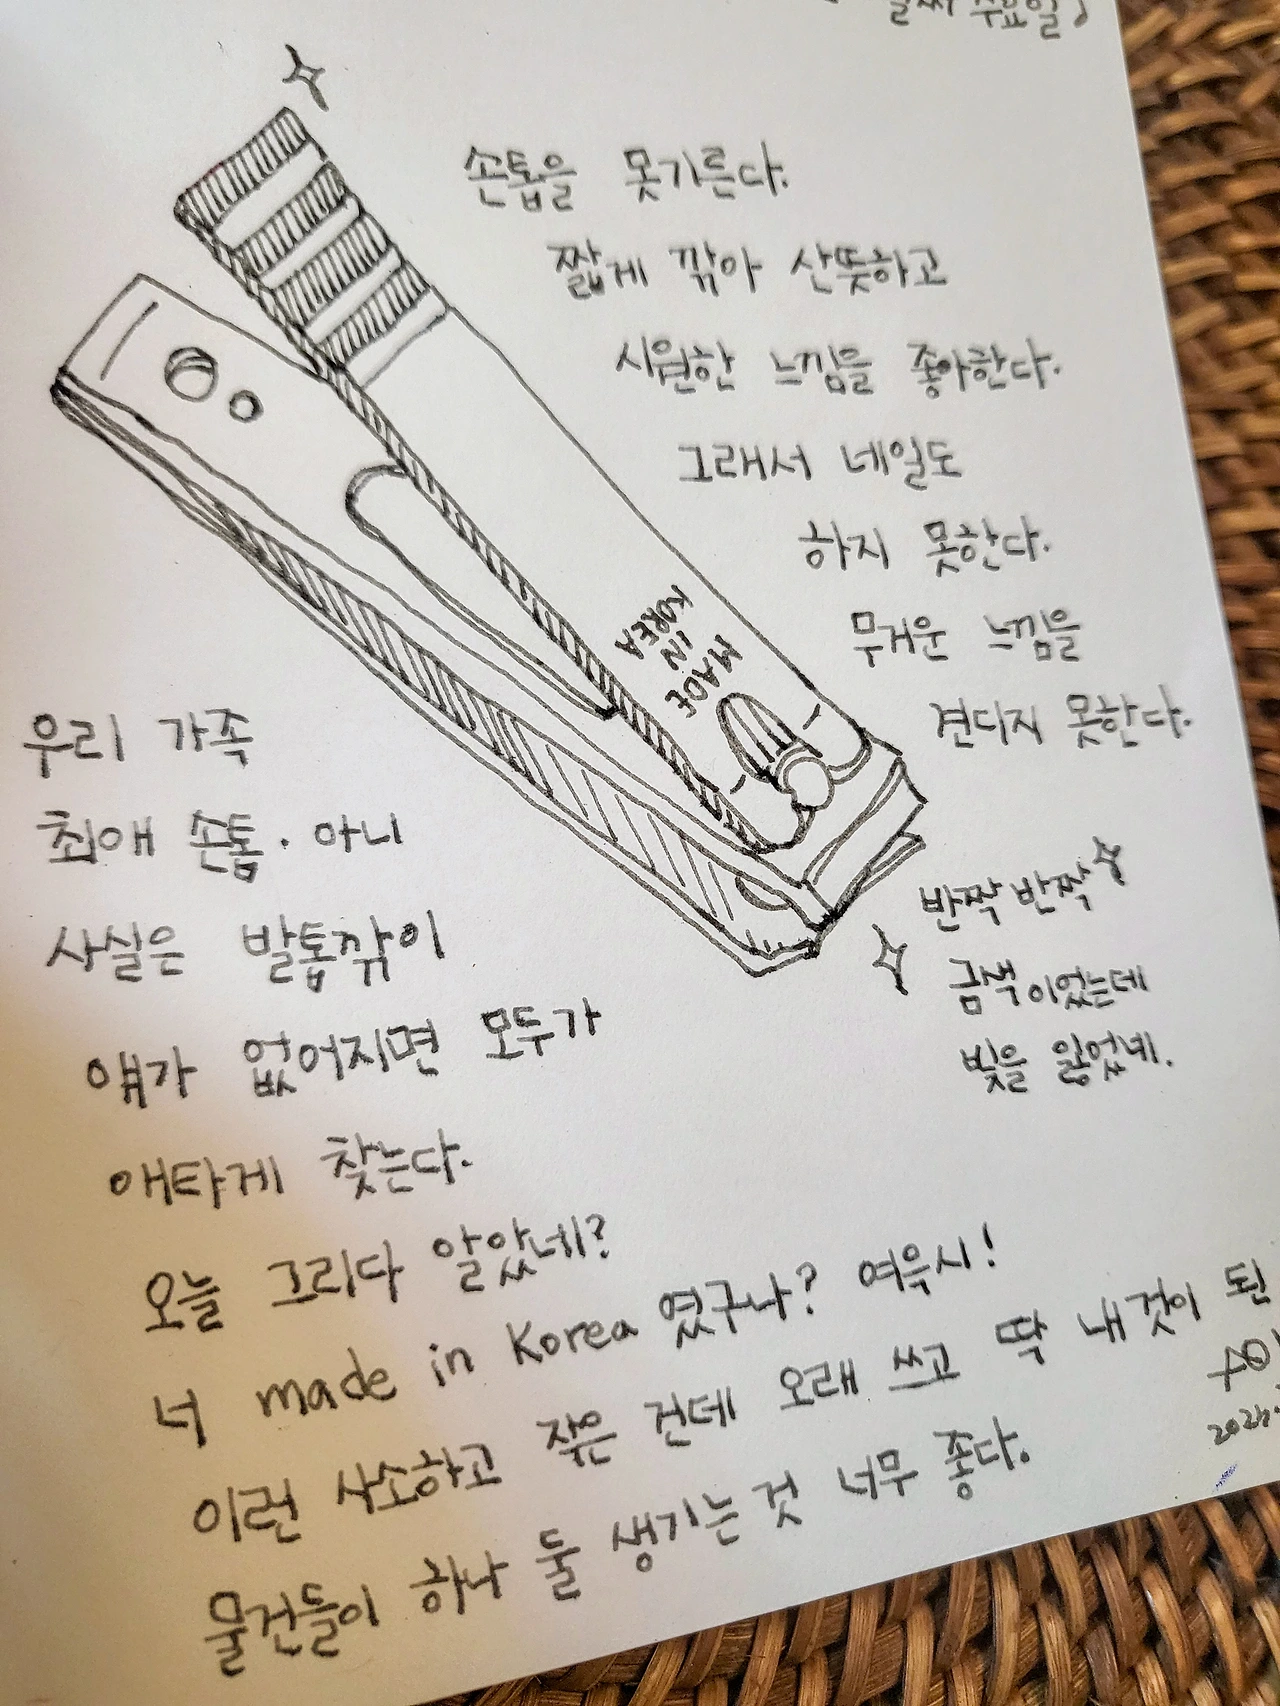 수요일♪
손톱을 못기른다.
짧게 깎아 산뜻하고
시원한 느낌을 좋아한다.
그래서 네일도
하지 못한다.
무거운 느낌을
견디지 못한다.
MADE
IN
KOREA
반짝반짝
금색이었는데
빛을 잃었네.
우리 가족
최애 손톱. 아니
사실은 발톱깎이
얘가 없어지면 모두가
애타게 찾는다.
오늘 그리다 알았네?
너 made in Korea 였구나? 여윽시!
이런 사소하고 작은 건데 오래 쓰고 딱 내것이 된
물건들이 하나 둘 생기는 것 너무 좋다.